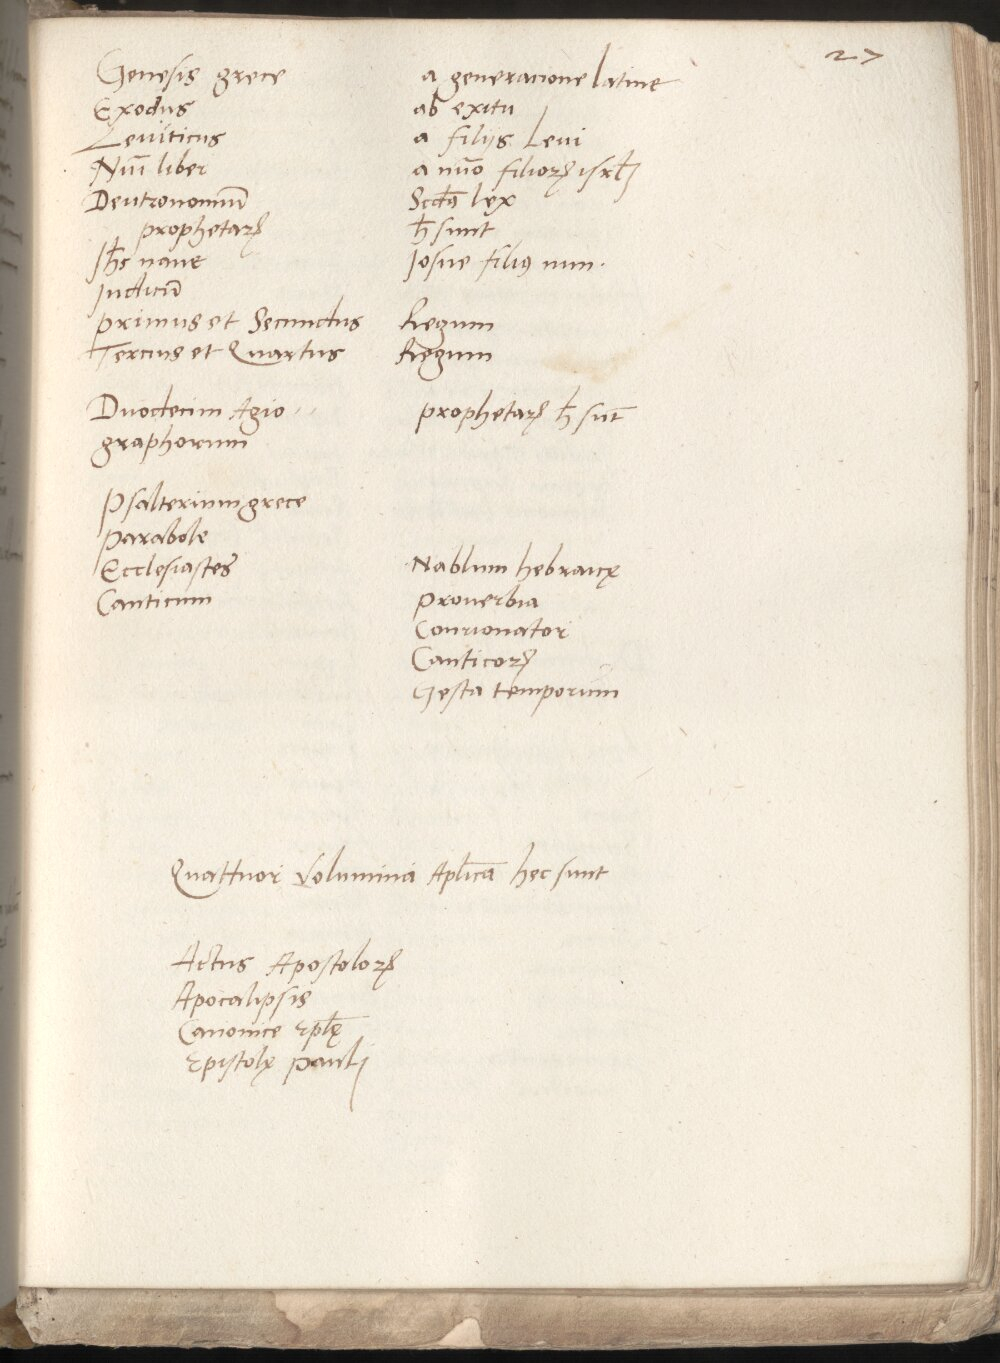 27
Genesis grece a generatione latine
Exodus ab exitu
Leuiticus a filijs Leui
Nūi liber a nūo filioꝝ isrł
Deutronomiū Scđa lex
prophetaꝝ ħ sunt
Iħs naue Iosue filiꝰ nun.
Iudicū
primus et Secundus Regum
Tercius et Quartus Regum
Duodecim Agio prophetaꝝ ħ sūt
graphorum
Psalterium grece
Parabole
Ecclesiastes Nablum hebraicę
Canticum Prouerbia
Concionator
Canticoꝝ
Gesta temporum
Quattuor Volumina Aplica hec sunt
Actus Apostoloꝝ
Apocalipsis
Canonice Eplę
Epistolę Pauli